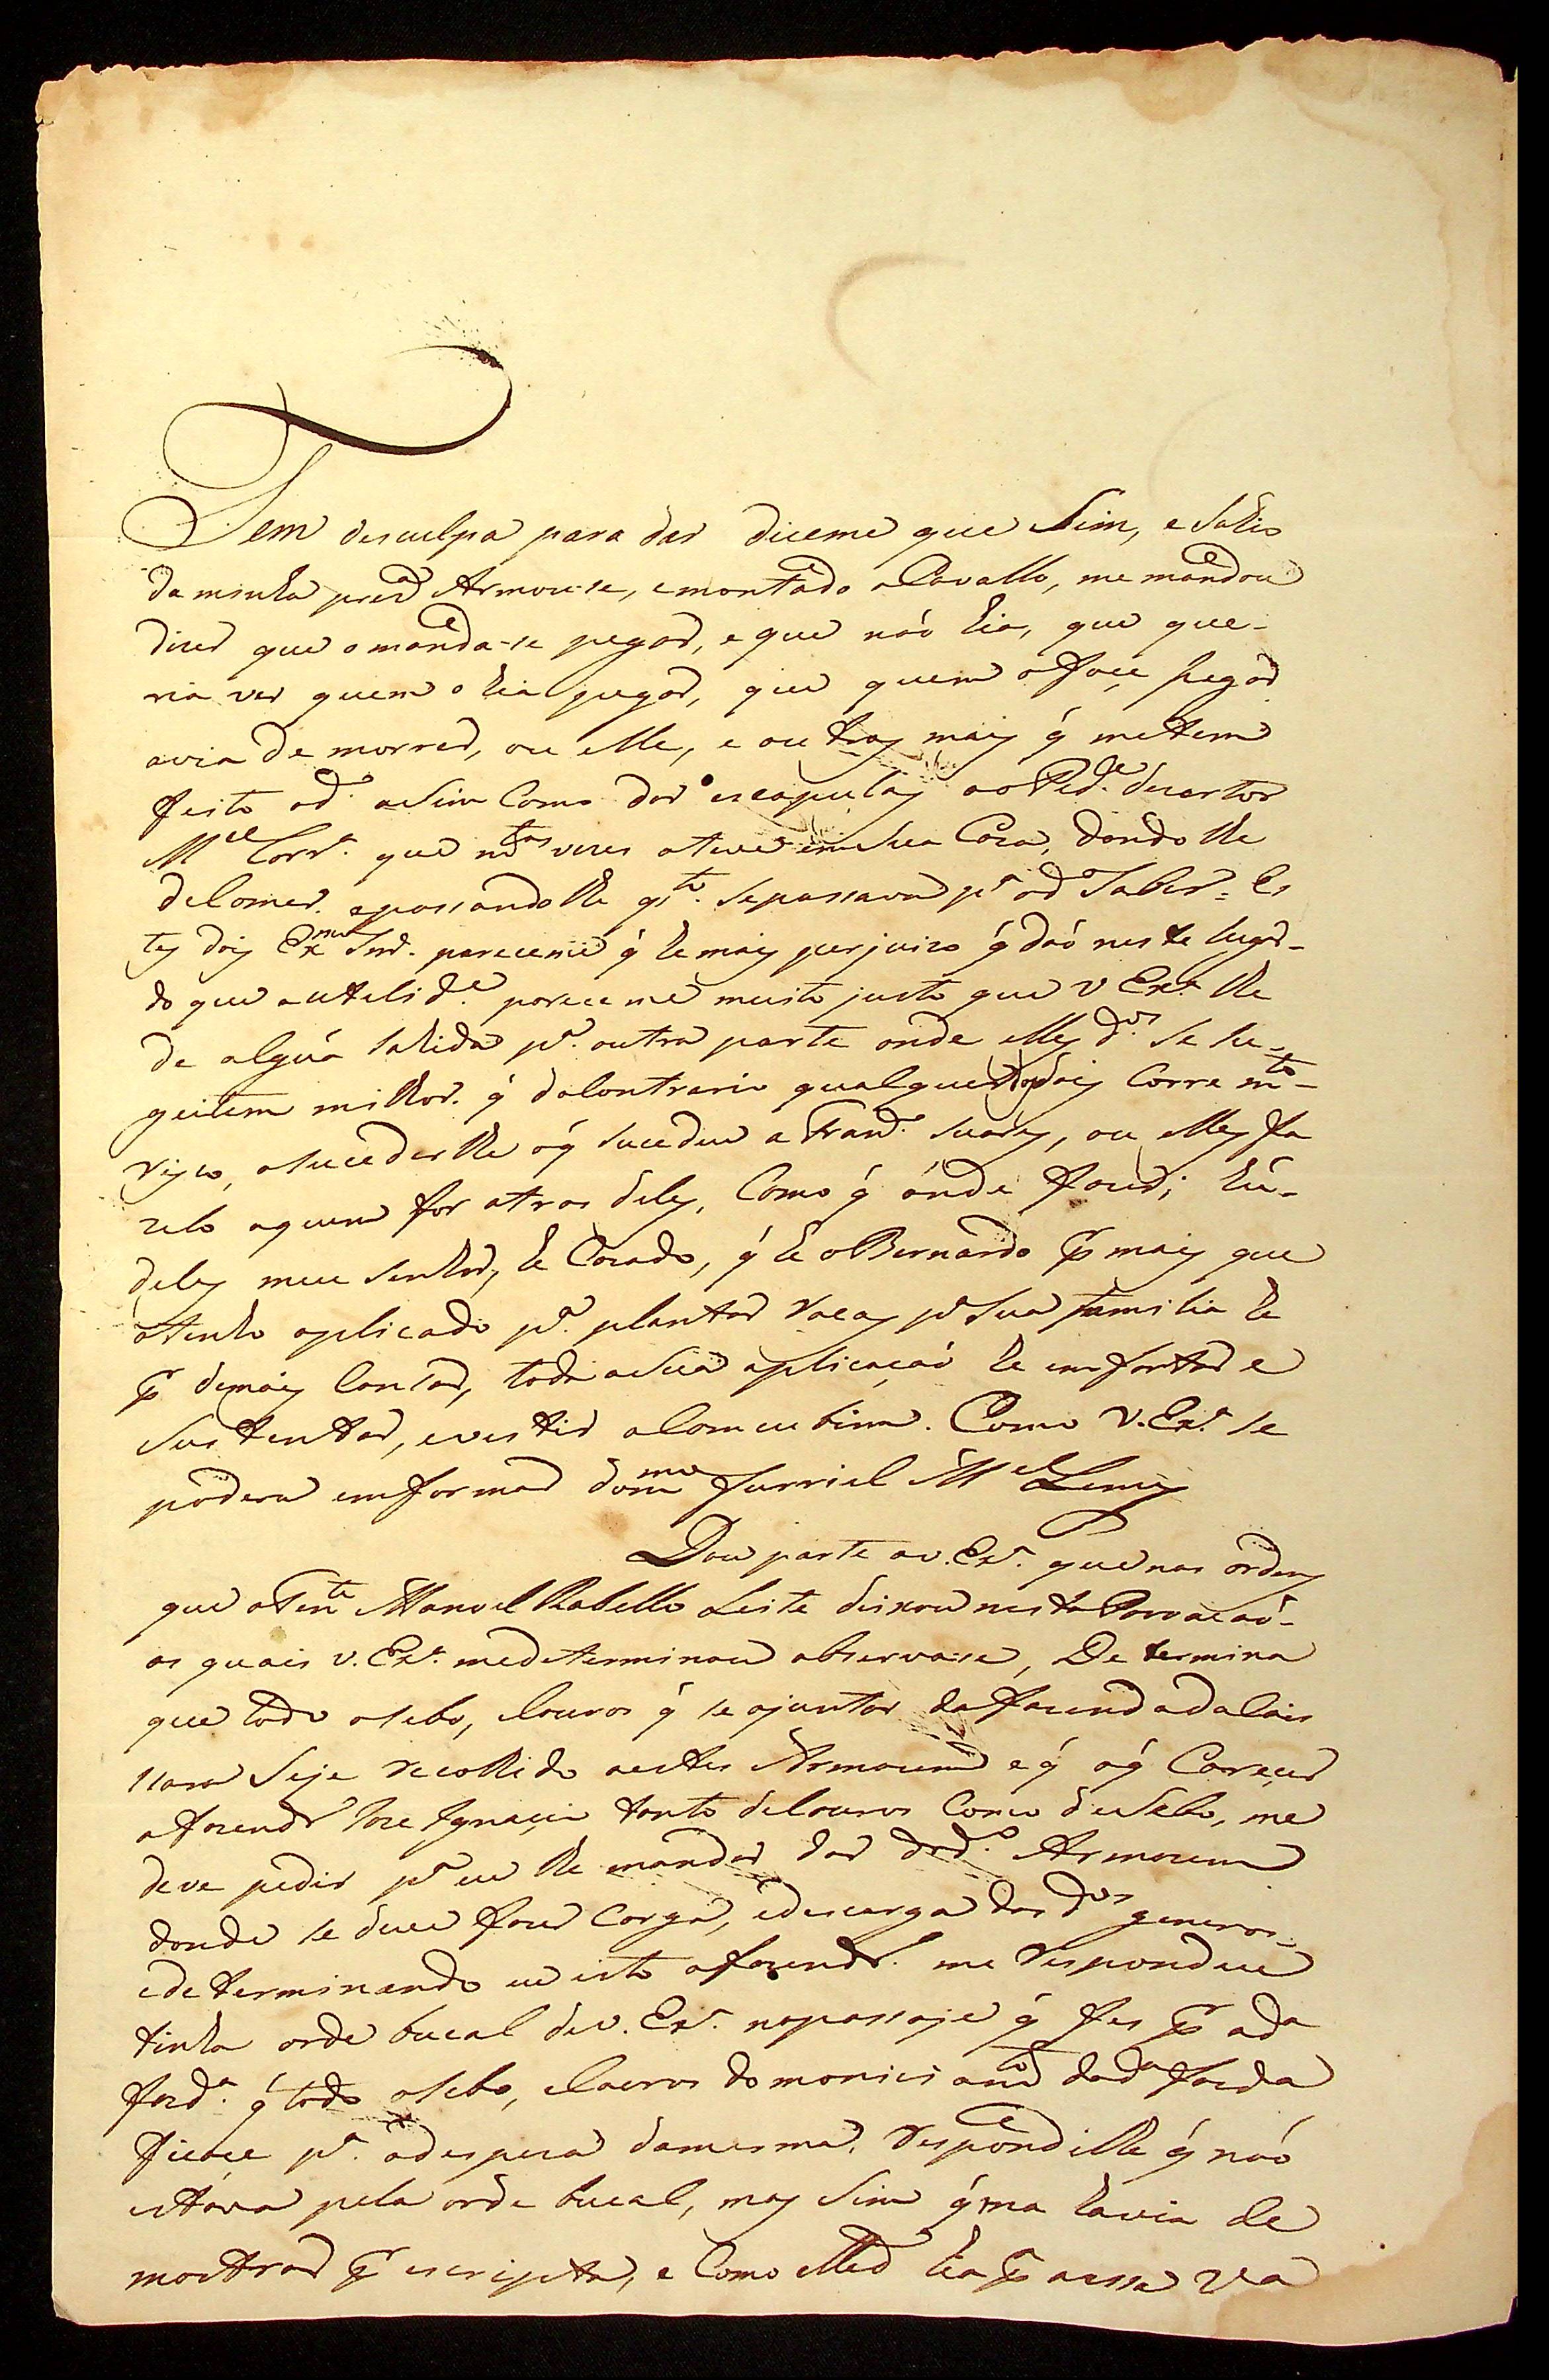 Sem desculpa para dar diceme que Sim, e sahio
da minha prez.ª Armouse, e montādo a Cavallo, me mandou
dizer que o manda-se pegar, e que não hia, que que-
ria ver quem o hia pegar, que quem o foce pegar
avia de morrer, ou elle, e outras mais q̃ me tem
feito o d.º a Sim Como dar escapulas ao d.º dezertor
M.el Corr.ª que m.tas vezes o teve em Sua Caza, dando lhe
de Comer. e passando lhe q.to Se passava p.ª o d.º Saber = Es
tes dois Ex.mo Snr. pareceme q̃ he mais perjuizo q̃ dão neste lugar-
do que a utelid.e parece me muito justo que V Ex.ª lhe
de algũa Sahida p.ª outra parte onde elles d.os Se su-
geitem milhor. q̃ do Contrario qualquer dos dois Corre m.to
risco, a suceder lhe o q̃ sucedeu a Fran.co Suares, ou elles fa
zelo a quem for atras deles, Como q̃ ónde fazer; hũ-
deles meu Senhor, he Cazado, q̃ he o Bernardo p.r mais que
o tenho aplicado p.ª plantar rocas p.ª Sua familia he
p.r demais Cansar, toda a Sua aplicação he em fartar e
Sustentar, e vestir a Comcubina. Como V. Ex.ª se
podera emformar do m.mo furriel M.el Lemes
Dou parte a V. Ex.ª que nas ordens
que o Ten.te Manoel Rabello Leite deixou nesta Povoacaõ-
as quais V. Ex.ª me determinou observa-se, Determina
que todo o sebo, e Couros q̃ se ajuntar da fazenda da Cais
sara Seje recolhido aestes Armazem e q̃ o q̃ Carecer
o fazendr.º Joze Ignacio tanto de Couros Como de Sebo, me
deve pedir p.ª eu lhe mandar dar do d.º Armazem
donde se deve fazer Carga, e descarga dos d.os generos-
e determinando eu isto o fazendr.º me Respondeu
tinha orde bucal de V. Ex.ª na passaje q̃ fes p.r a d.ª
fazd.ª q̃ todo o Sebo, e Couros do da d.ª fazda
ficace p.ª a despeza da mesma. respondi lhe q̃ não
estava pela orde bucal, mas Sim q̃ ma havia de
mostrar p.r escripta, e Como hia p.r aessa